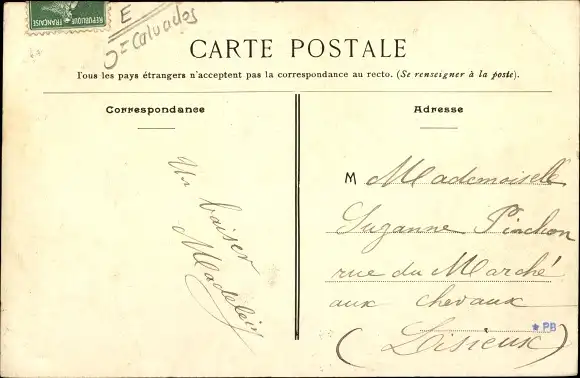 REPUBLIQUE FRANÇAISE
E
= Calvados
CARTE POSTALE
Tous les pays étrangers n'acceptent pas la correspondance au recto. (Se renseigner à la poste).
Correspondance
Un baiser
Adresse
M Mademoiselle
Suzanne Pinchon
rue du Marché
aux chevaux
(Lisieux)
PB